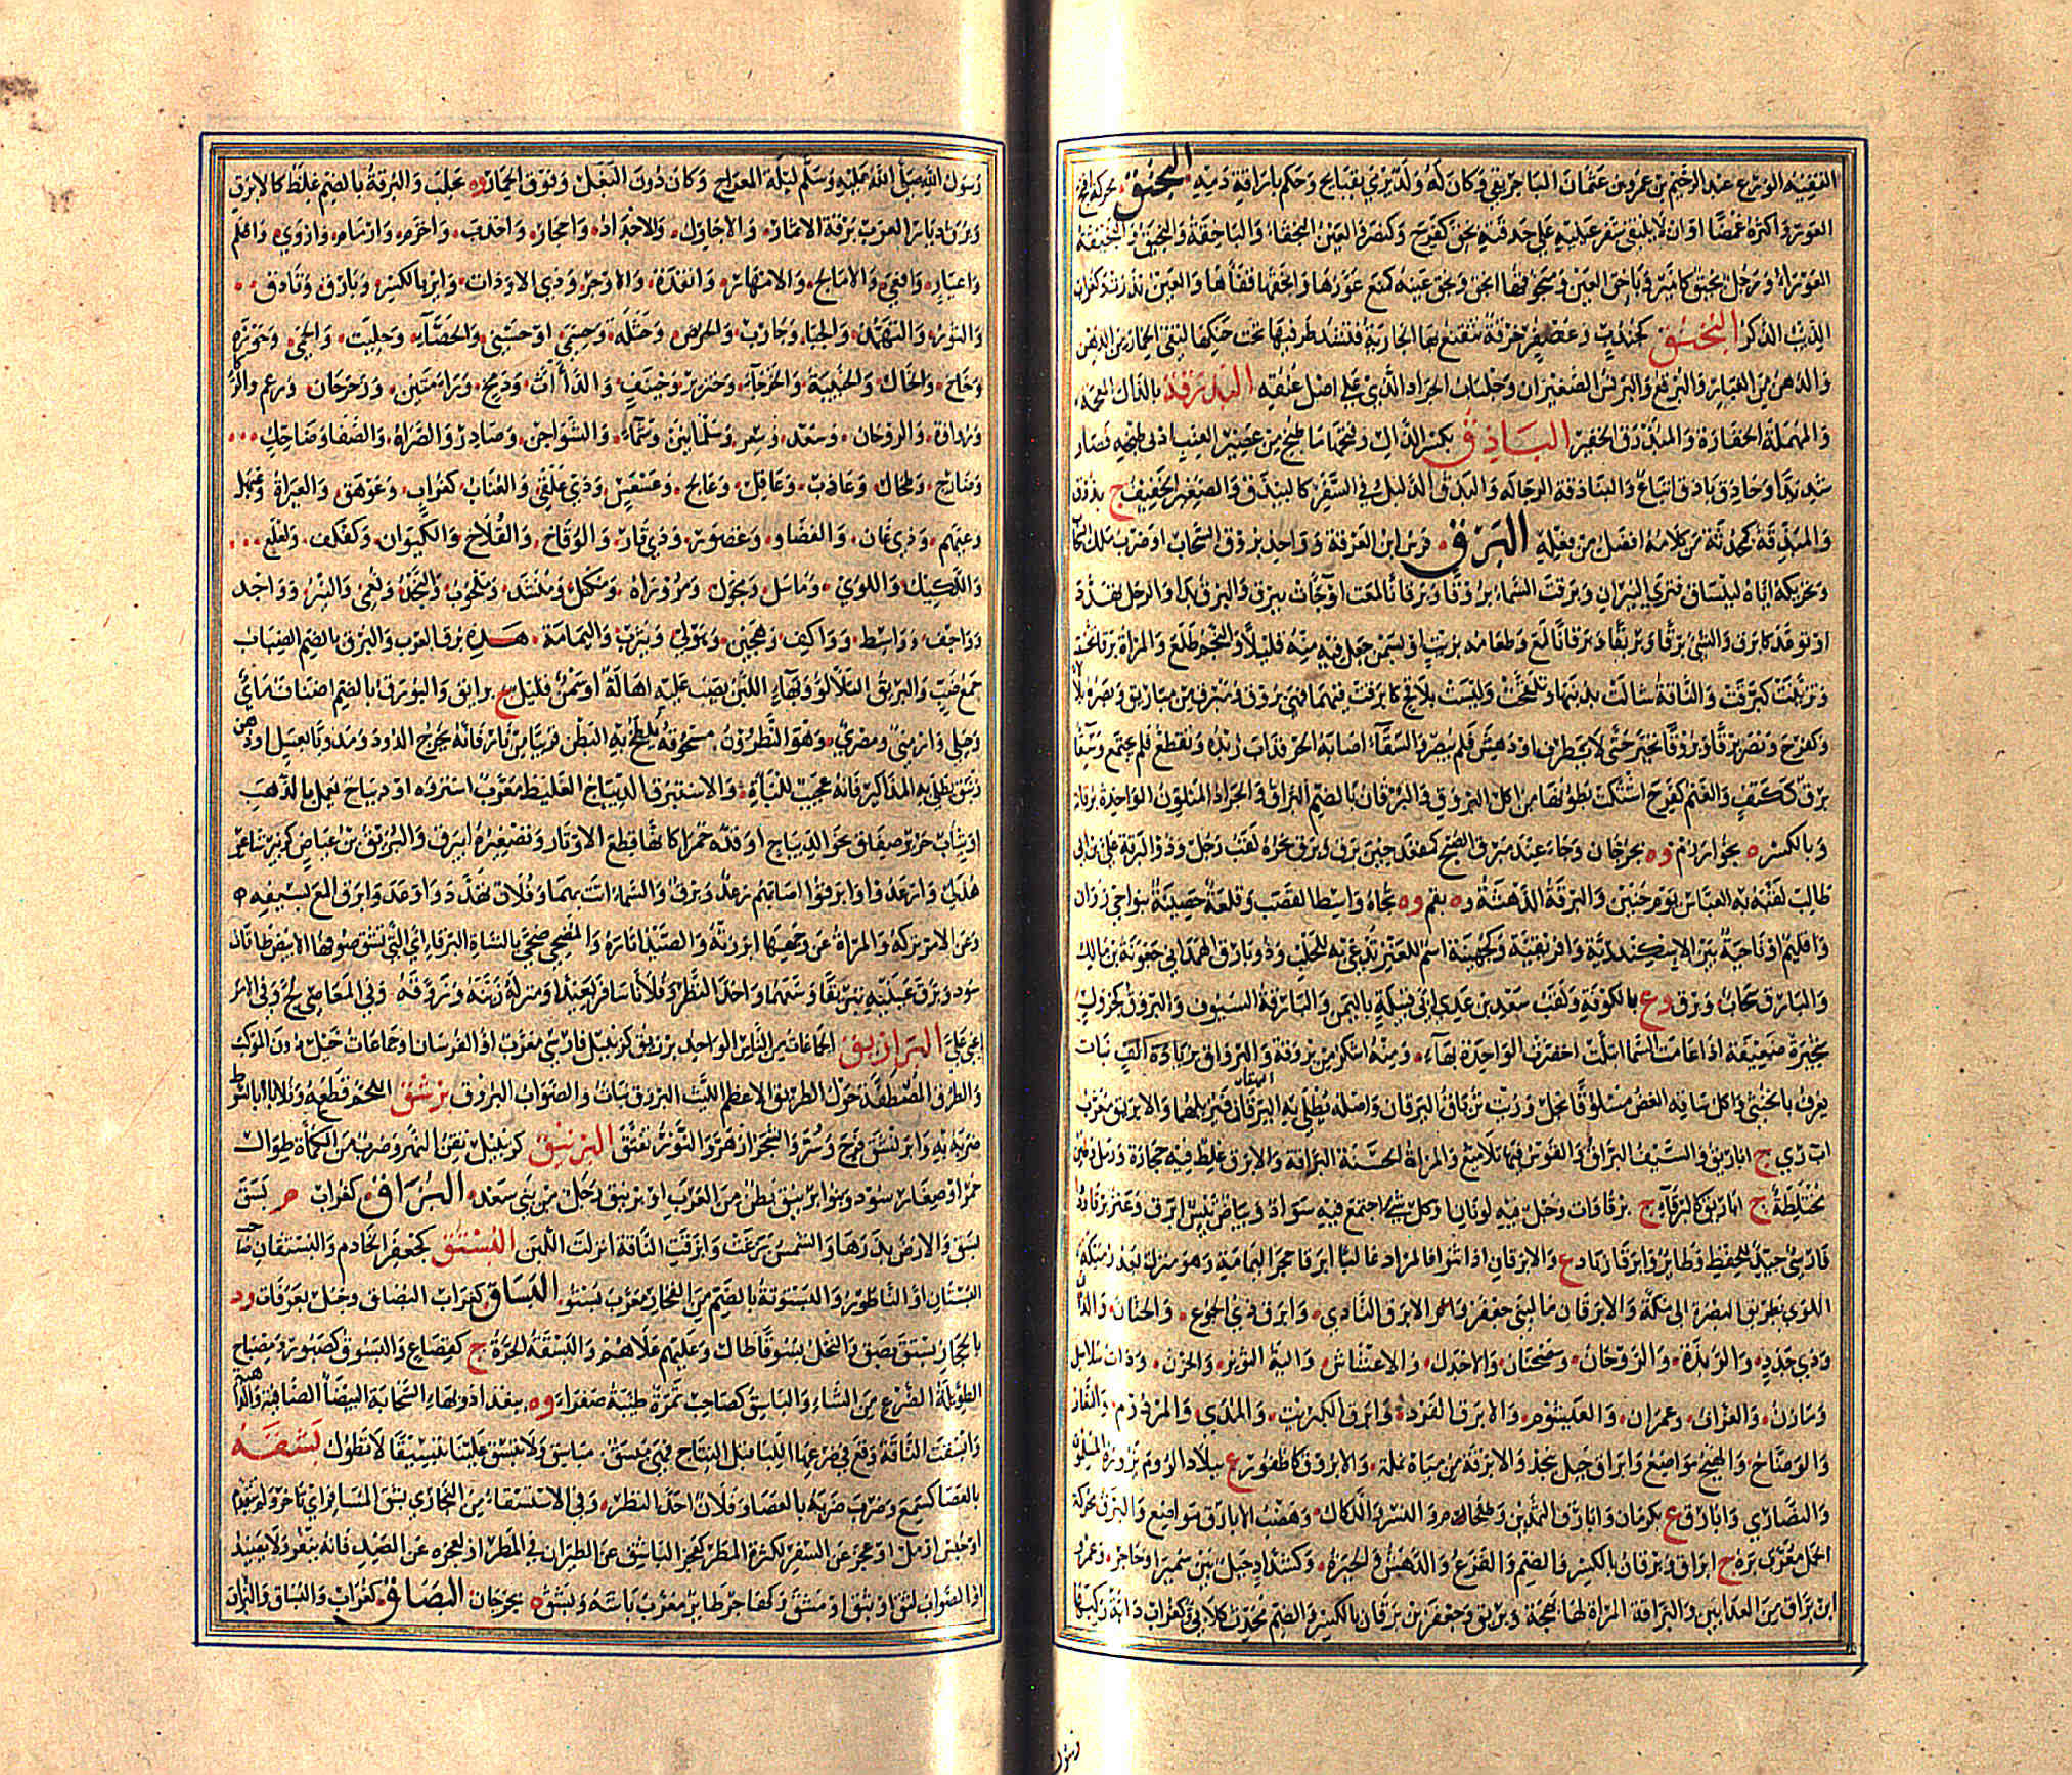 الفقيه الورع عبد الرحيم بن عمرو بن عثمان الباجربقي وكان له ولد يرمي بقبايح وحكم باراقة دمه البخق محركة اقبح
العور واكثره غمصا او ان لا يلتقي شفر عينيه علي حدقته بخق كفرح وكنصر والعين البخقاء والباخقة والبخيق والبخيقة
العوراء ورجل بخيق كامير وباخق العين ومبخوقها ابخق وبخق عينه كمنع عورها وابخقها فقأها والعين ندرت وكغراب
الذيب الذكر البخنق كجندب وعصفر خرقة تتقنع بها الجارية فتشد طرفيها تحت حنكها لتقي الخمار من الدهن
والدهن من الغبار والبرقع والبرنس الصغيران وجلباب الجراد الذي علي اصل عنقه البذرقة بالذال المعجمة
والمهملة الخفارة والمبذرق الخفير الباذق بكسر الذال وفتحها ما طبخ من عصير العنب ادني طبخه فصار
شديدا وحاذق باذق اتباع والبياذقة الرجالة والبذق الدليل في السفر كالبيذق والصغير الخفيف ج بذوق
والمبذقة كمحدثة من كلامه افضل من فعله البرق فرس ابن العرقة وواحد بروق السحاب او ضرب ملك السحاب
وتحريكه اياه لينساق فتري النيران وبرقت السماء بروقا وبرقانا لمعت او جاءت ببرق والبرق بدا والرجل تهدد
او توعد كابرق والشئ برقا وبريقا وبرقانا لمع وطعامه بزيت او سمن جعل فيه منه قليلا والنجم طلع والمراة برقا تحسنت
وتزينت كبرقت والناقة شالت بذنبها وتلقحت وليست بلاقح كابرقت فيهما فهي بروق ومبرق من مباريق وبصره تلألأ
وكفرح ونصر برقا وبروقا تحير حتي لا يطرف او دهش فلم يبصر والسقاء اصابه الحر فذاب زبده وتقطع فلم يجتمع وسقاء
برق ككتف والغنم كفرح اشتكت بطونها من اكل البروق والبرقان بالضم البراق والجراد المتلون الواحدة برقانة
وبالكسر ه بخوارزم وه بجرجان وجاء عند مبرق الصبح كمقعد حين برق وبرق نحره لقب رجل وذو البرقة علي بن ابي
طالب لقبه به العباس يوم حنين والبرقة الدهشة وه بقم وه تجاه واسط القصب وقلعة حصينة بنواحي دوان
واقليم او ناحية بين الاسكندرية وافريقية وكجهينة اسم للعنز تدعي به للحلب وذو بارق الهمداني جعونة بن مالك
والبارق سحاب وبرق وع بالكوفة ولقب سعد بن عدي ابي قبيلة باليمن والبارقة السيوف والبروق كجرول
شجيرة ضعيفة اذا غامت السماء ابتلت اخضرت الواحدة بهاء ومنه اشكر من بروقة والبرواق بزيادة الف نبات
يعرف بالخنثي واكل ساقه الغض مسلوقا بخل وزيت ترياق اليرقان واصله يطلي به البهقان فيزيلهما والابريق معرب
اب ري ج اباريق والسيف البراق والقوس فيها تلاميع والمراة الحسنة البراقة والابرق غليظ فيه حجارة ورمل وطين
مختلطة ج ابارق كالبرقاء ج برقاوات وجبل فيه لونان او كل شئ اجتمع فيه سواد وبياض تيس ابرق وعنز برقاء ودواء
فارسي جيد للحفظ وطاير وابرقا زياد ع والابرقان اذا ثنوا فالمراد غالبا ابرقا حجر اليمامة وهو منزل بعد رميلة
اللوي بطريق البصرة الي مكة والابرقان ما لبني جعفر والابرق البادي وابرق ذي الجموع والحنان والداث
وذي جدد والربذة والروحان وضيحان والاجدل والاعشاش والية النوير والحزن وذات سلاسل
ومازن والعزاف وعمران والعيشوم والابرق الفرد وابرق الكبريت والمدي والمردوم والنقار
والوضاح والهيج مواضع وابراق جبل بنجد والابرقة من مياه نملة والابروق كاظفور ع ببلاد الروم يزوره المسلمون
والنصاري وابارق ع بكرمان وابارق الثمدين وطلخام والنسر واللكاك وهضب الابارق مواضع والبرق محركة
الحمل معرب بره ج ابراق وبرقان بالكسر والضم والفزع والدهش والحيرة وكشداد جبل بين سميراء وحاجر وعمرو
ابن براق من العدايين والبراقة المراة لها بهجة وبريق وجعفر بن برقان بالكسر والضم محدث كلابي وكغراب دابة ركبها
رسول
رسول الله صلي الله عليه وسلم ليلة المعراج وكان دون البغل وفوق الحمار وه بحلب والبرقة بالضم غلظ كالابرق
وبرق ديار العرب برقة الاثماد والاجاول والاجداد واحجار واخدف واخرم وارمام واروي واظلم
واعيار وافعي والامالح والامهار وانقدة والاوجر وذي الاودات واير بالكسر وبارق وثادق
والثور والثهمد والجبا وجارب والحرض وحسلة وحسمي او حسني والحصاء وحليت والحمي وحوزة
وخاخ والخال والخبيبة والخرجاء وخنزير وخينف والداث ودمخ ورامتين ورحرحان ورعم والركاء
ورواوة والروحان وسعد وسعر وسلمانين وسماء والشواجن وصادر والصراة والصفا وضاحك
وضارج وطحال وعاذب وعاقل وعالج وعسعس وذي علقي والعناب كغراب وعوهق والعيرات وعيهل
وعيهم وذي غان والغضا وغضور وذي قار والوقاخ والقلاخ والكبوان وكفكف ولعلع
واللكيك واللوي وماسل ومجول ومروراة ومكتل ومنشد وملحوب والنجد ونعمي والنير وواحد
وواجف وواسط وواكف وهجين وهولي ويثرب واليمامة هذه برق العرب والبرق بالضم الضباب
جمع ضب والبريق التلألؤ وبهاء اللبن يصب عليه اهالة او سمن قليل ج برايق والبورق بالضم اصناف مائي
وجبلي وارمني ومصري وهو النطرون مسحوقه يلطخ به البطن قريبا من نار فانه يخرج الدود ومدوفا بعسل او دهن
زنبق يطلي به المذاكير فانه عجيب للباءة والاستبرق الديباج الغليظ معرب استروه او ديباج يعمل بالذهب
او ثياب حرير صفاق نحو الديباج او قدة حمراء كانها قطع الاوتار وتصغيره ابيرق والبريق بن عياض كزبير شاعر
هذلي وارعدوا وابرقوا اصابهم رعد وبرق والسماء اتت بهما وفلان تهدد واوعد وابرق المع بسيفه
وعن الامر تركه والمراة عن وجهها ابرزته والصيد اثاره والمضحي ضحي بالشاة البرقاء اي التي تشق صوفها الابيض طاقات
سود وبرق عينيه تبريقا وسعهما واحد النظر وفلان سافر بعيدا ومنزله زينه وزوقه وفي المعاصي لج وفي الامر
اعيي علي البرازيق الجماعات من الناس الواحد برزيق كزنبيل فارسي معرب او الفرسان وجماعات خيل دون الموكب
والطرق المصطفة حول الطريق الاعظم الليث البروق نبات والصواب البروق برشق اللحم قطعه وفلانا بالسوط
ضربه به وابرنشق فرح وسر والشجر ازهر والنور تفتق البرنيق كزنبيل نقن النهر وضرب من الكمأة طوال
حمر او صغار سود وبنو ابرنيق بطن من العرب او برنيق رجل من بني سعد البزاق كغراب م بسق
بسق والارض بذرها والشمس بزغت وابزقت الناقة انزلت اللبن البستق كجعفر الخادم والبستقان صاحب
البستان او الناطور والبستوقة بالضم من الفخار معرب بستو البساق كغراب البصاق وجبل بعرفات ود
بالحجاز وبسق بصق والنخل بسوقا طال وعليهم علاهم والبسقة الحرة ج كقصاع والبسوق كصبور ومصباح
الطويلة الضرع من الشاء والباسق كصاحب ثمرة طيبة صفراء وه ببغداد وبهاء السحابة البيضاء الصافية والداهية
وابسقت الناقة وقع في ضرعها اللبأ قبل النتاج فهي مبسق مباسق ولا تبسق علينا تبسيقا لا تطول بشقه
بالعصا كسمع وضرب ضربه بالعصا وفلان احد النظر وفي الاستسقاء من البخاري بشق المسافر اي تاخر ولم يتقدم
او حبس او مل او عجز عن السفر لكثرة المطر كعجز الباشق عن الطيران في المطر او لعجزه عن الصيد فانه ينفر ولا يصيد
او الصواب لثق او نثق او مشق وكهاجر طاير معرب باشه وبشق ه بجرجان البصاق كغراب والبساق والبزاق